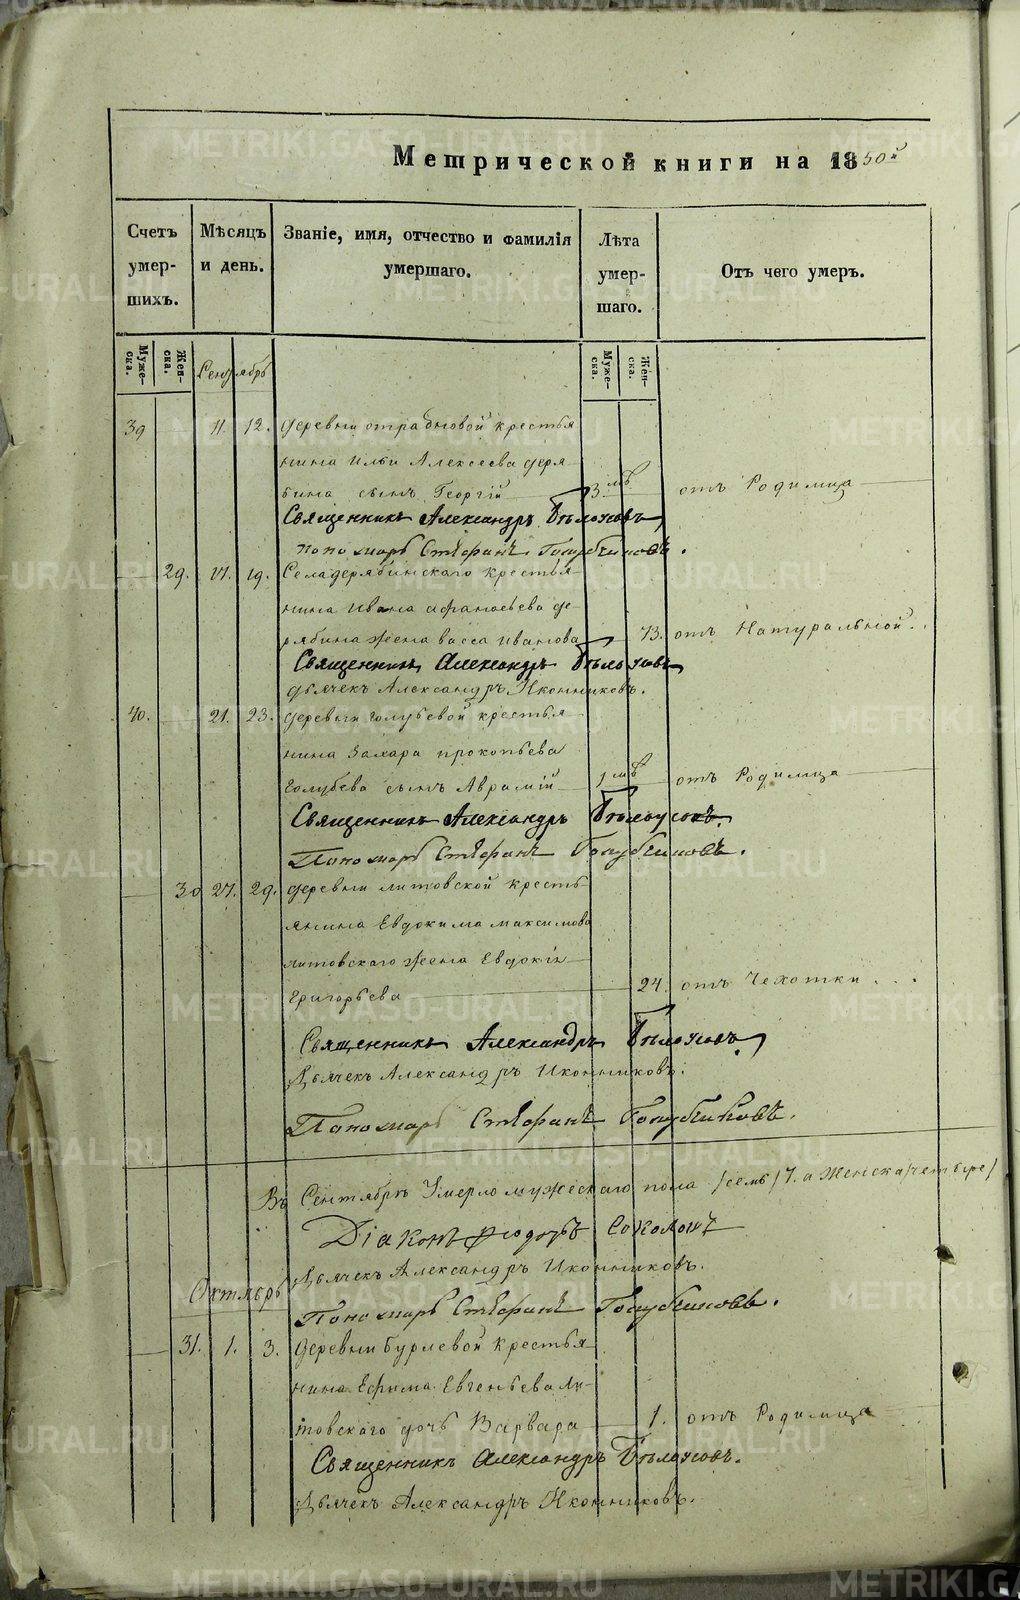 Метрической книги на 1850й
Счетъ умершихъ.
Мѣсяцъ и день.
Званіе, имя, отчество и фамилія умершаго.
Лѣта умершаго.
Отъ чего умеръ.
Мужеска.
Женска.
Мужеска.
Женска.
Сентябрь
39 11. 12. деревни отрадновой крестья
нина Ильи Алексеева деря
бина сынъ Георгій 3 мѣ отъ Родимца
Священникъ Александръ Бѣлоусовъ
пономарь Стефанъ Голубчиковъ.
29. 17. 19. Села дерябинскаго крестья
нина Ивана афанасьева де
рябина жена васса иванова 73. отъ Натуральной..
Священникъ Александръ Бѣлоусовъ
дьячекъ Александръ Иконниковъ.
40. 21. 23. деревни голубевой крестья
нина Захара прокопьева
голубева сынъ Аврамій 1 мѣ отъ Родимца
Священникъ Александръ Бѣлоусовъ.
Пономарь Стефанъ Голубчиковъ.
30 27. 29. деревни литовской кресть
янина Евдокима максимова
литовскаго жена Евдокія
Григорьева 24. отъ Чехотки ...
Священникъ Александръ Бѣлоусовъ
Дьячекъ Александръ Иконниковъ.
Пономарь Стефанъ Голубчиковъ.
Въ Сентябрѣ Умерло мужескаго пола /семь/ 7. а Женска /четыре/
Діаконъ Ѳеодоръ Соколовъ
Дьячекъ Александръ Иконниковъ.
Октябрь
Пономарь Стефанъ Голубчиковъ.
31. 1. 3. деревни бурлевой крестья
нина Ефима Евгеньева ли
товскаго дочь Варвара 1. отъ Родимца
Священникъ Александръ Бѣлоусовъ.
Дьячекъ Александръ Иконниковъ.
METRIKI.GASO-URAL.RU